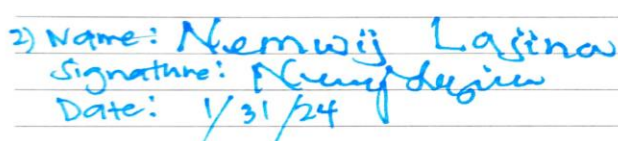 2) Name: Nemwij Lajina
Signature:
Date: 1/31/24